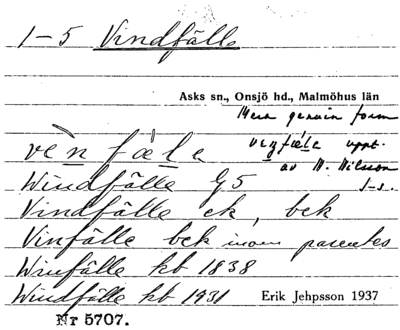 1-5 Vindfälle
Asks sn., Onsjö hd., Malmöhus län
Mera genuin form
venfæle uppt.
av N. Nilsson
I-5.
vèn fæ̀le
Windfälle G5
Vindfälle ek, bek
Vinfälle bek inom parentes
Winfälle kb 1838
Windfälle kb 1931
Erik Jehpsson 1937
Nr 5707.